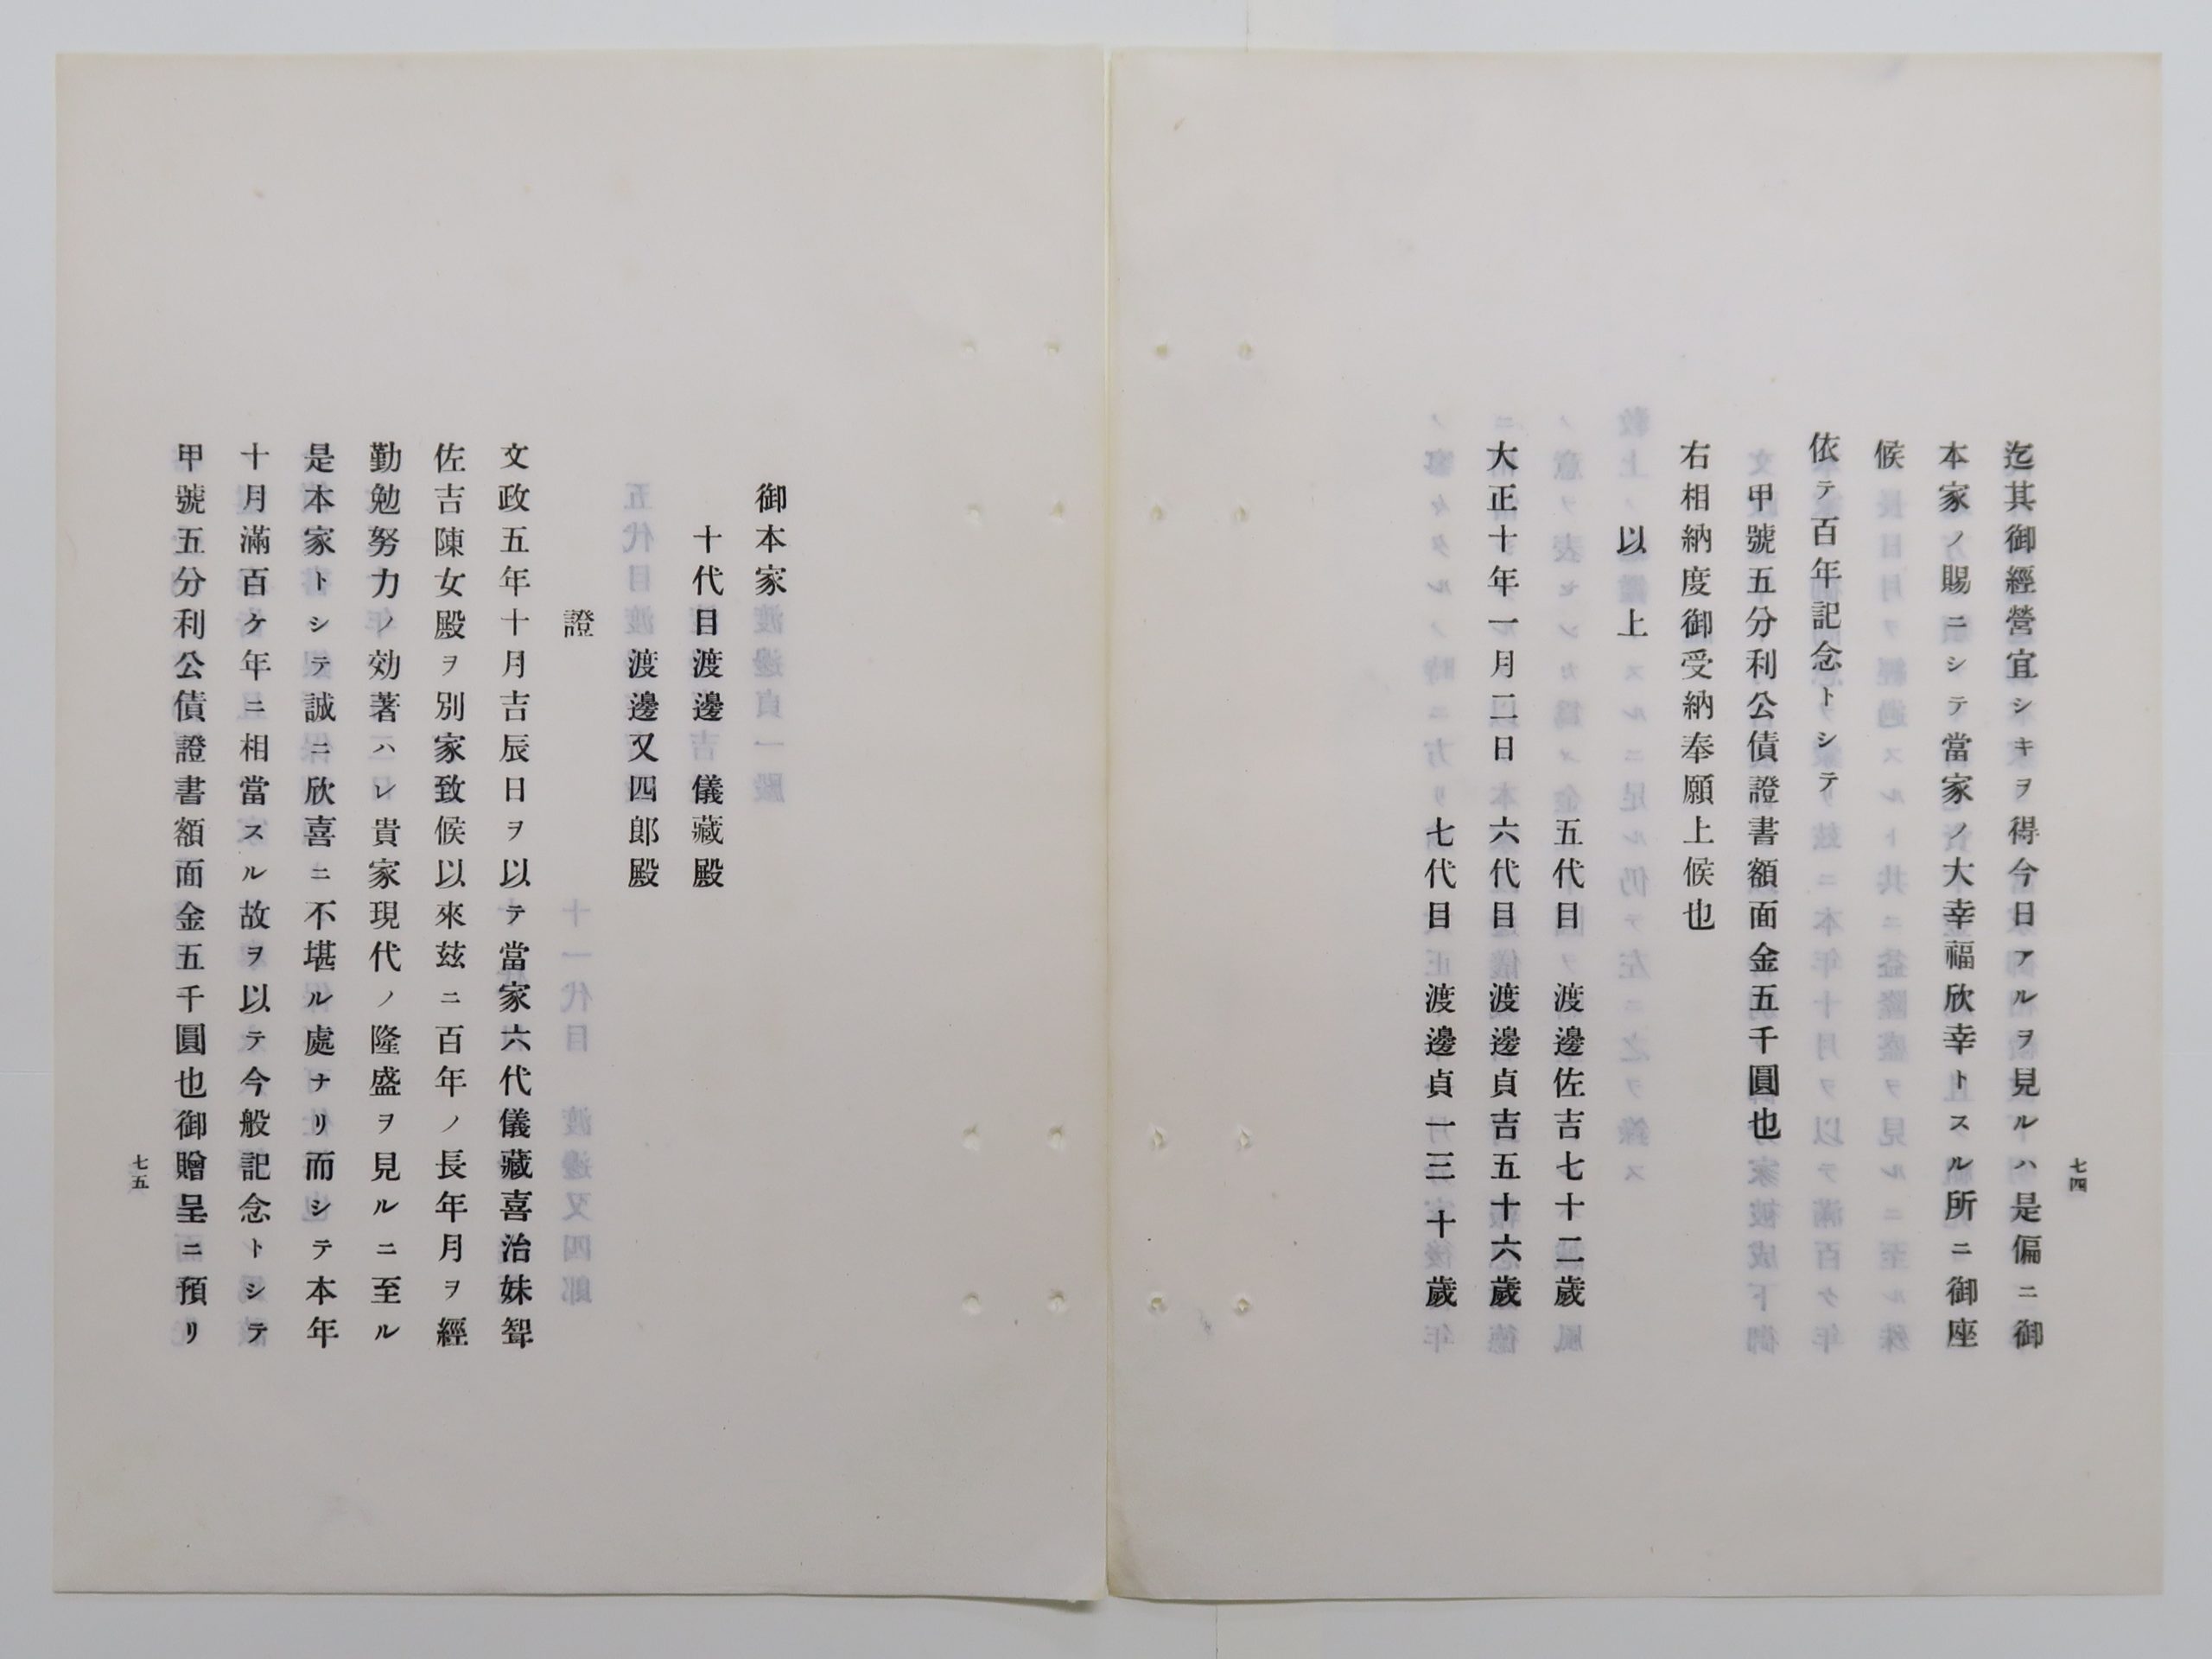 七四
迄其御經營宜シキヲ得今日アルヲ見ルハ是偏ニ御
本家ノ賜ニシテ當家ノ大幸福欣幸トスル所ニ御座
候
依テ百年記念トシテ
甲號五分利公債證書額面金五千圓也
右相納度御受納奉願上候也
以上
大正十年一月二日
五代目 渡邊佐吉七十二歲
六代目 渡邊貞吉五十六歲
七代目 渡邊貞一三十歲
御本家
十代目渡邊 儀藏殿
渡邊又四郎殿
證
文政五年十月吉辰日ヲ以テ當家六代儀藏喜治妹聟
佐吉陳女殿ヲ別家致候以來玆ニ百年ノ長年月ヲ經
勤勉努力ノ効著ハレ貴家現代ノ隆盛ヲ見ルニ至ル
是本家トシテ誠ニ欣喜ニ不堪ル處ナリ而シテ本年
十月滿百ケ年ニ相當スル故ヲ以テ今般記念トシテ
甲號五分利公債證書額面金五千圓也御贈呈ニ預リ
七五